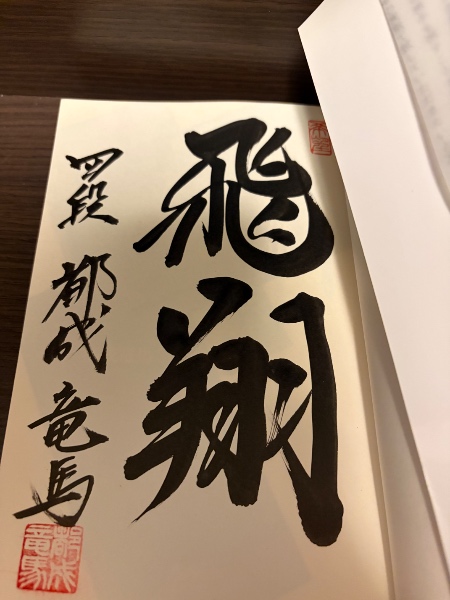 飛翔
四段 都成竜馬
都成
竜馬